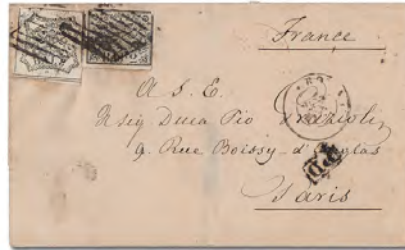 France
A S. E.
Il Sig. Duca Pio Grazioli,
9. Rue Boissy d'Anglas
Paris
PD